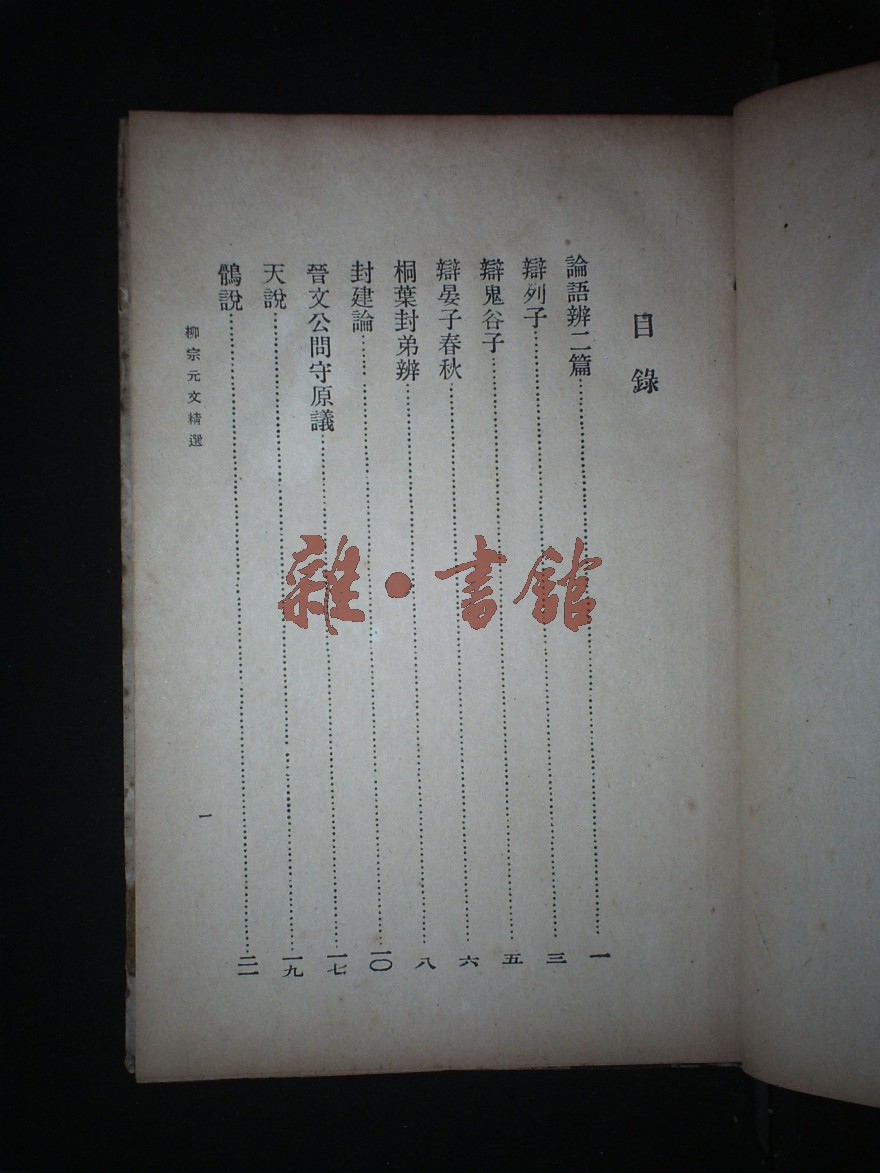 目錄
論語辨二篇……一
辯列子……三
辯鬼谷子……五
辯晏子春秋……六
桐葉封弟辨……八
封建論……一〇
晉文公問守原議……一七
天說……一九
鶻說……二一
柳宗元文精選
一
雜・書館